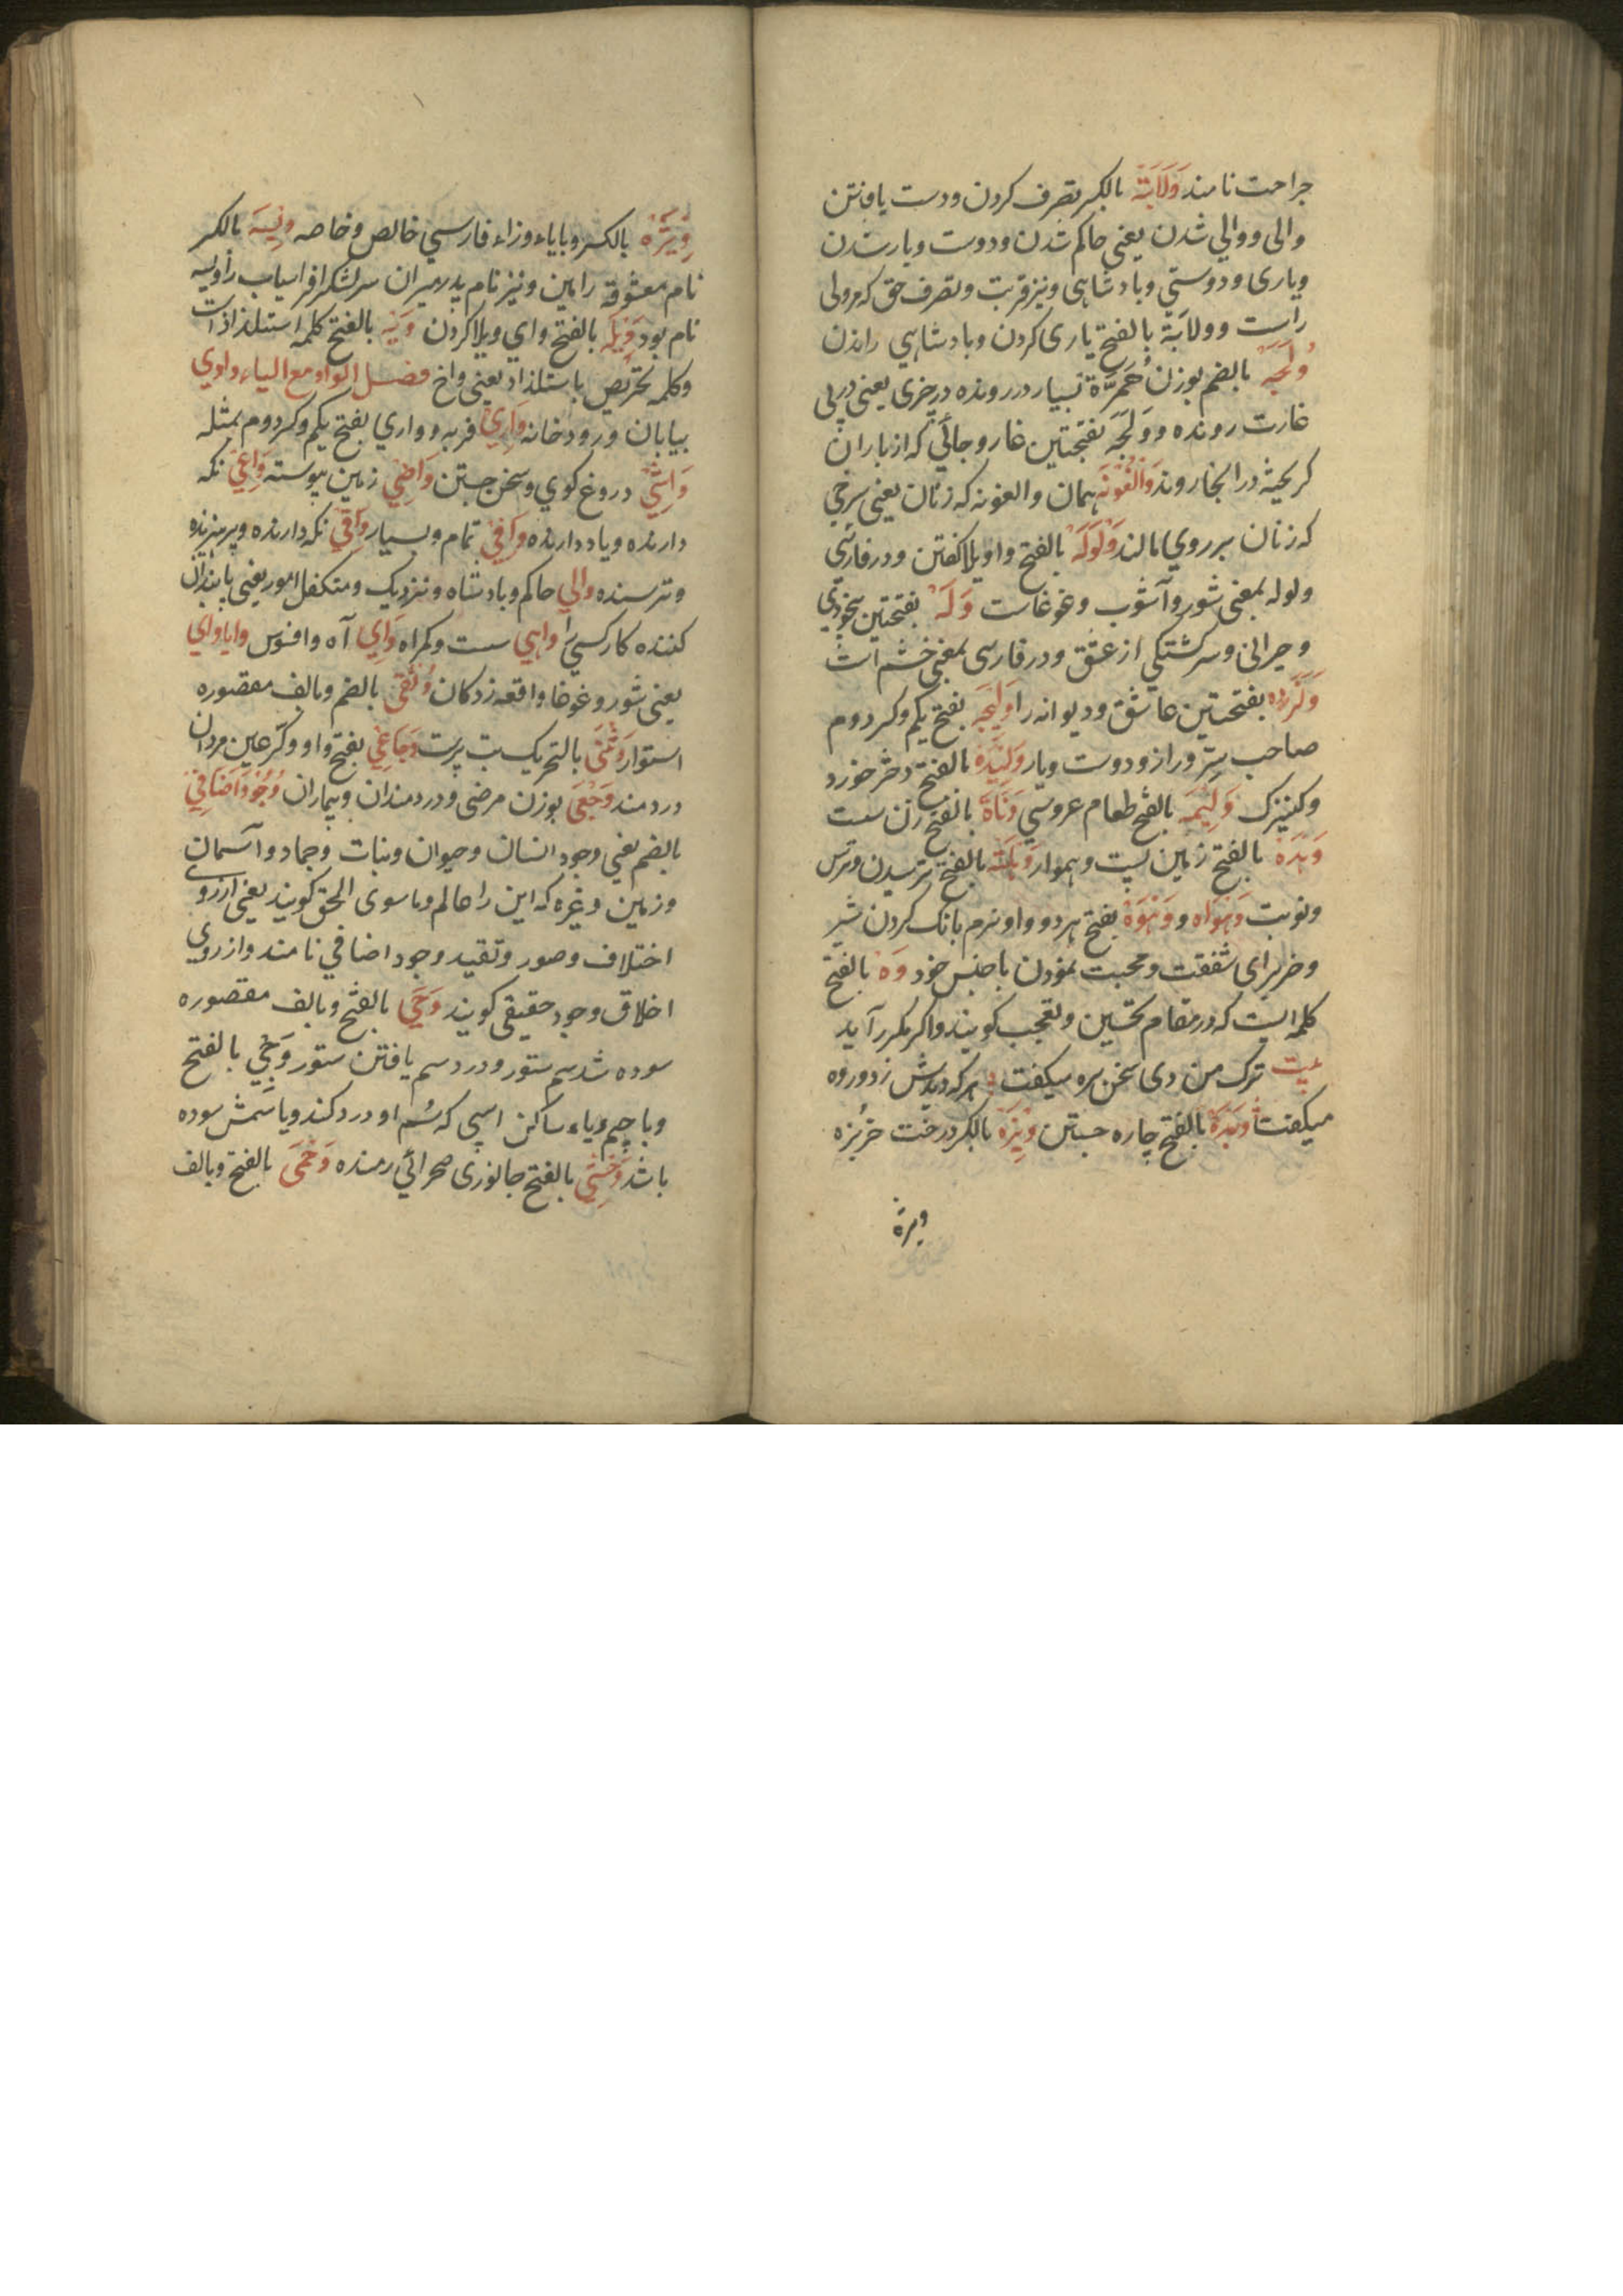 جراحت نامند وَلَايَة بالكسر تصرف كردن ودست يافتن
والى ووالي شدن يعنى حاكم شدن ودوست ويار شدن
ويارى ودوستي وبادشاهى ونيز قربت وتصرف حق كه مرولى
راست وولاية بالفتح يارى كردن وبادشاهي راندن
وُلَجَه بالضم بوزن حُمَرَة بسيار در رونده در چيزى يعنى درپى
غارت رونده ووَلَجَه بفتحتين غار وجائى كه از باران
كريخته در انجا روند والغونه همان والغونه كه زنان يعنى سرخى
كه زنان بر روي مالند وَلْوَلَه بالفتح واويلا كفتن ودر فارسى
ولوله بمعنى شور وآشوب وغوغاست وَلَه بفتحتين بيخودي
وحيرانى وسركشتكى از عشق ودر فارسى بمعنى خشم است
بفتحتين عاشق وديوانه را وَلِيجَه بفتح يكم وكسر دوم
صاحب سِرّ وراز ودوست ويار وَلِيدَه بالفتح دختر خورد
وكنيزك وَلِيْمَه بالفتح طعام عروسي وَنَاة بالفتح زن سست
وَهْدَة بالفتح زمين پست وهموار وَهْلَة بالفتح ترسيدن وترس
ونوبت وَهْوَاه ووَهْوَهَة بفتح هر دو واو نرم بانك كردن شير
وخر براى شفقت ومحبت نمودن باجنس خود وَه بالفتح
كلمه ايست كه در مقام تحسين وتعجب كويند واكر مكرر آيد
بيت ترك من دى سخن بره ميكفت هر كه ديدش ز دور وه
ميكفت بالفتح چاره جستن ويزه بالكسر درخت خربزه
ويزه
وِيْژَه بالكسر وباياء وزاء فارسي خالص وخاصه وِيْسَه بالكسر
نام معشوقه رامين ونيز نام پدر پيران سرلشكر افراسياب را ويسه
نام بود وَيْلَه بالفتح واي ويلا كردن وَيْه بالفتح كلمه استلذاذ است
وكلمه تحريص باستلذاذ يعنى واخ فصل الواو مع الياء وادي
بيابان ورودخانه وَارِي فربه وواري بفتح يكم وكسر دوم بمثله
وَاشِي دروغ كوي وسخن چين وَاصِي زمين پيوسته وَاعِي نكه
دارنده وياد دارنده وَافِي تمام وبسيار وَاقِي نكه دارنده وپرهيزنده
وترسنده والي حاكم وبادشاه ونزديك ومتكفل امور يعنى پابندان
كننده كار كسي را واهي سست وكمراه وَاي آه وافسوس واياواي
يعنى شور وغوغا واقعه زدكان وُثْقَى بالضم وبالف مقصوره
استوار وَثَنِي بالتحريك بت پرست وَجَاعِي بفتح واو وكسر عين مردان
دردمند وَجْعَى بوزن مرضى ودردمندان وبيماران وُجُودِاضَافِي
بالضم يعنى وجود انسان وحيوان ونبات وجماد وآسمان
وزمين وغيره كه اين را عالم وماسوى الحق كويند يعنى از روي
اختلاف وصور وتقيد وجود اضافي نامند واز روي
اخلاق وجود حقيقى كويند وَجَى بالفتح وبالف مقصوره
سوده شد سم ستور ودرد سم يافتن ستور وَجِي بالفتح
وباجيم وياء ساكن اسپى كه سُم او درد كند وياسمش سوده
باشد وَحْشِي بالفتح جانورى صحرائي رمنده وَحْمَى بالفتح وبالف